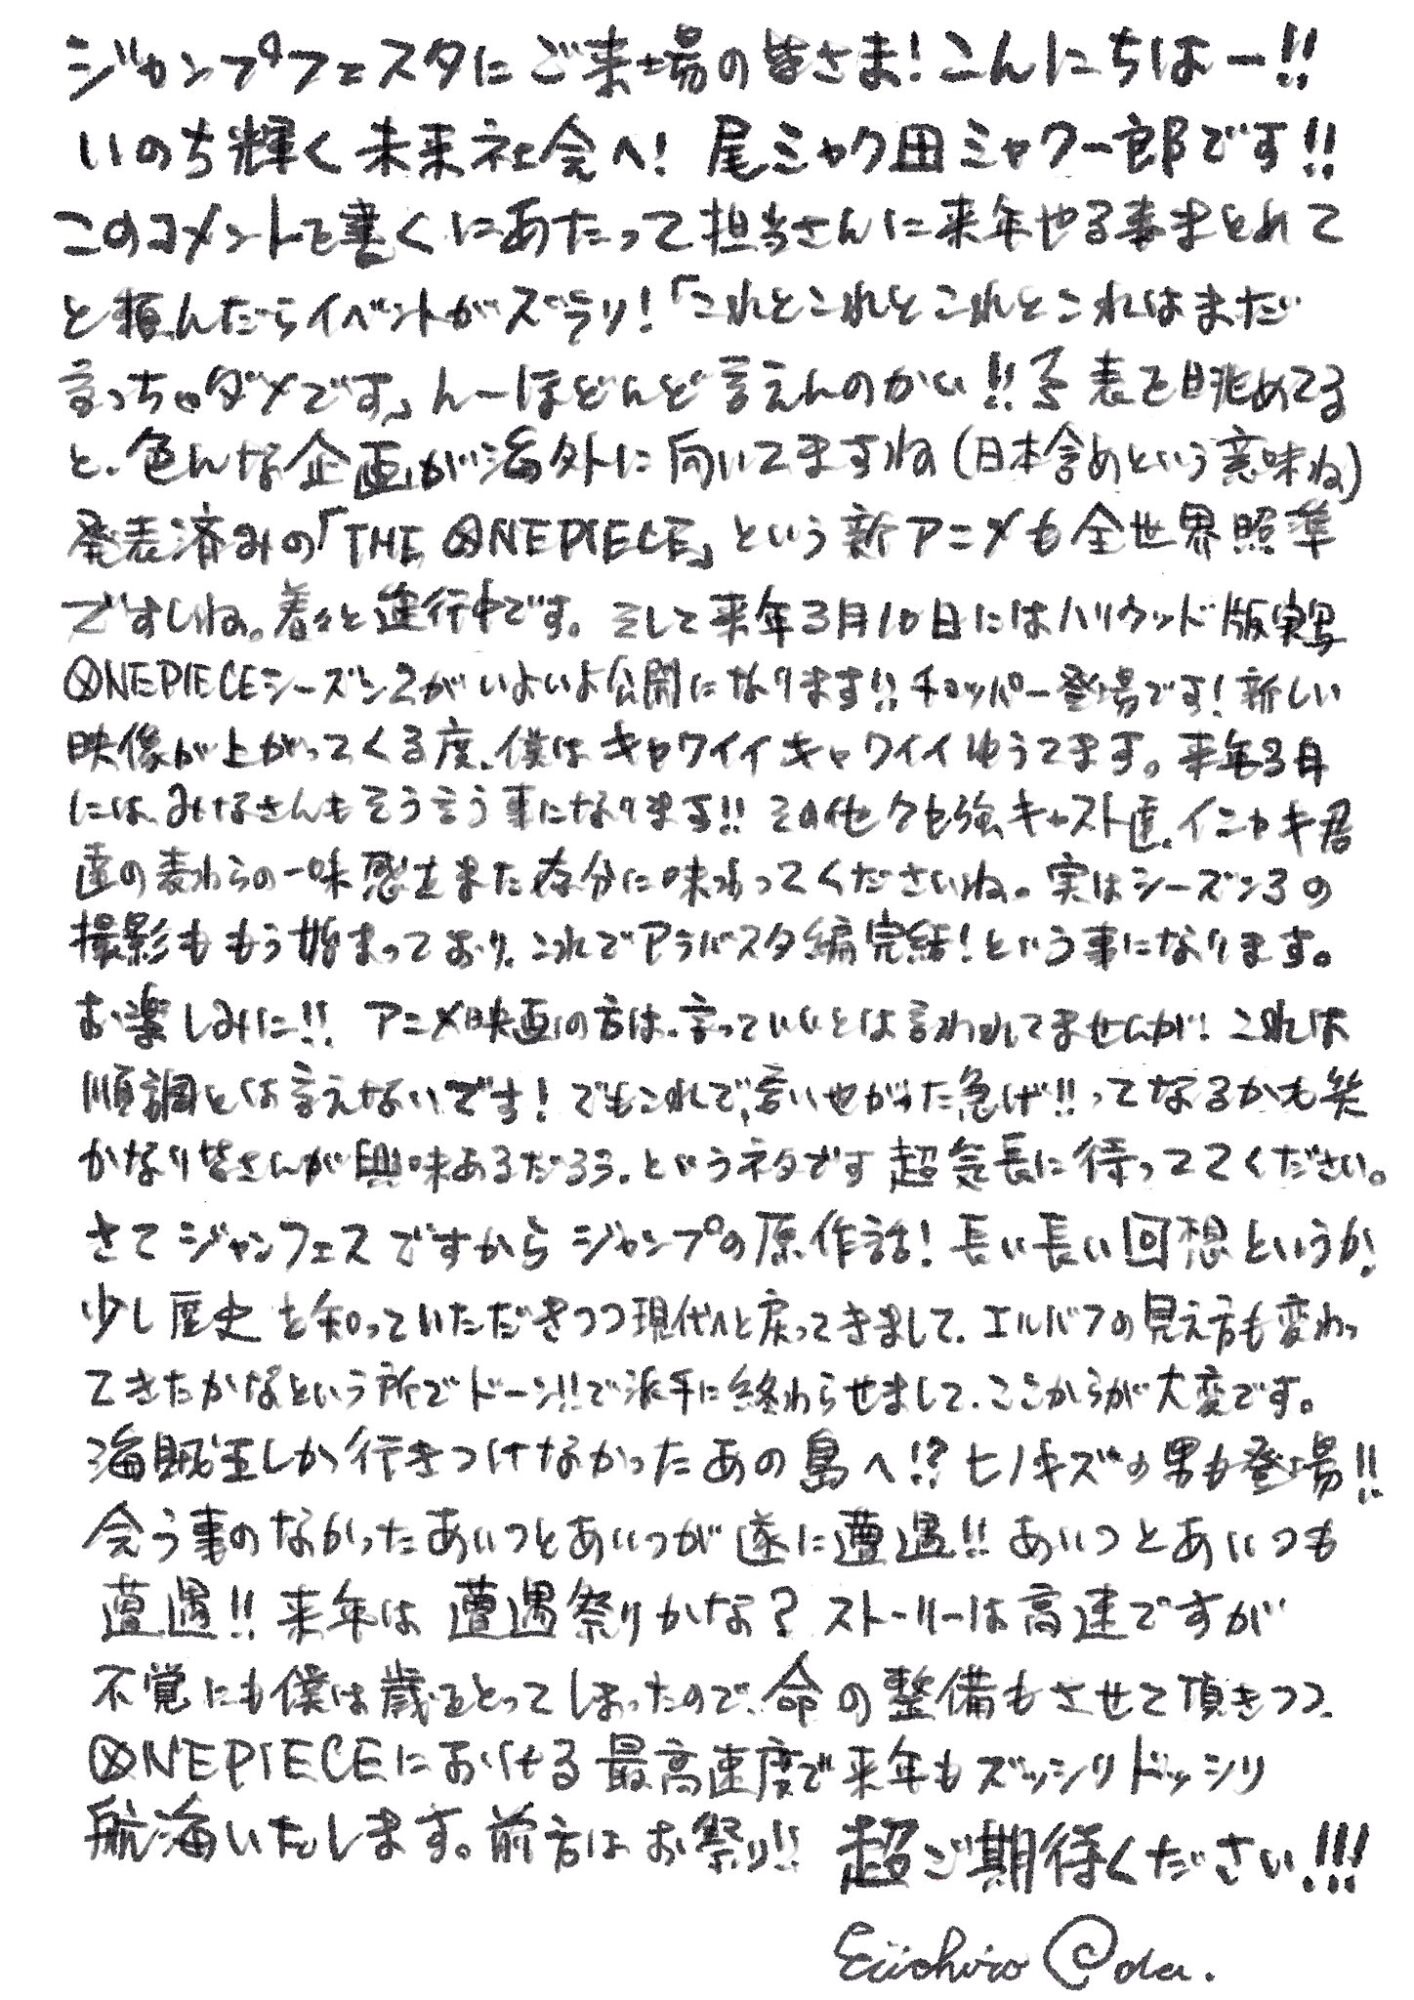 ジャンプフェスタにご来場の皆さま!こんにちはー!!
いのち輝く未来社会へ! 尾ミャク田ミャク一郎です!!
このコメントを書くにあたって担当さんに来年やる事まとめて
と頼んだらイベントがズラリ!「これとこれとこれとこれはまだ
言っちゃダメです」んーほどんど言えんのかい!!予表を眺めてる
と、色んな企画が海外に向いてますね(日本含めという意味ね)
発表済みの「THE ONE PIECE」という新アニメも全世界照準
ですしね。着々と進行中です。そして来年3月10日にはハリウッド版実写
ONE PIECEシーズン2がいよいよ公開になります!!チョッパー登場です!新しい
映像が上がってくる度、僕はキャワイイキャワイイゆうてます。来年3月
には、みなさんもそう言う事になります!!その他クセ強キャスト達、イニャキ君
達の麦わらの一味感をまた存分に味わってくださいね。実はシーズン3の
撮影ももう始まっており、これでアラバスタ編完結!という事になります。
お楽しみに!! アニメ映画の方は、言っていいとは言われてませんが!これは
順調とは言えないです!でもこれで、言いやがった急げ!!ってなるかも笑
かなり皆さんが興味あるだろう、というネタです超気長に待っててください。
さてジャンフェスですからジャンプの原作話!長い長い回想というか!
少し歴史を知っていただきつつ現代へと戻ってきまして、エルバフの見え方も変わっ
てきたかなという所でドーン!!で派手に終わらせまして、ここからが大変です。
海賊王しか行きつけなかったあの島へ!?ヒノキズの男も登場!!
会う事のなかったあいつとあいつが遂に遭遇!!あいつとあいつも
遭遇!!来年は遭遇祭りかな?ストーリーは高速ですが
不覚にも僕は歳をとってしまったので、命の整備もさせて頂きつつ、
ONE PIECEにおける最高速度で来年もズッシリドッシリ
航海いたします。前方はお祭り!! 超ご期待ください!!!
Eiichiro Oda.